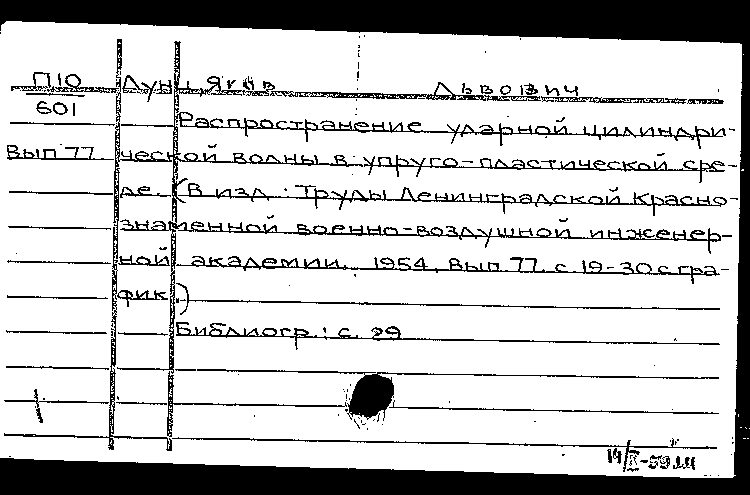 П10 Лунц, Яков Львович
601
Распространение ударной цилиндри-
Вып 77 ческой волны в упруго-пластической сре-
де. (В изд.: Труды Ленинградской Красно-
знаменной военно-воздушной инженер-
ной академии. 1954, Вып. 77. с 19-30 с гра-
фик.)
Библиогр.: с. 29